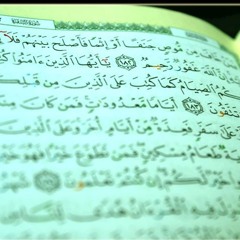 مُوصٍ جَنَفًا أَوْ إِثْمًا فَأَصْلَحَ بَيْنَهُمْ فَلَآ
غَفُورٌ رَّحِيمٌ ١٨٢ يَٰٓأَيُّهَا ٱلَّذِينَ ءَامَنُوا۟
ٱلصِّيَامُ كَمَا كُتِبَ عَلَى ٱلَّذِينَ مِن قَبْلِكُمْ
تَتَّقُونَ ١٨٣ أَيَّامًا مَّعْدُودَٰتٍ فَمَن كَانَ
عَلَىٰ سَفَرٍ فَعِدَّةٌ مِّنْ أَيَّامٍ أُخَرَ وَعَلَى ٱلَّذِينَ
طَعَامُ مِسْكِينٍ فَمَن تَطَوَّعَ خَيْرًا فَهُوَ
خَيْرٌ لَّكُمْ إِن كُنتُمْ تَعْلَمُونَ
ٱلْقُرْءَانُ هُدًى لِّلنَّاسِ